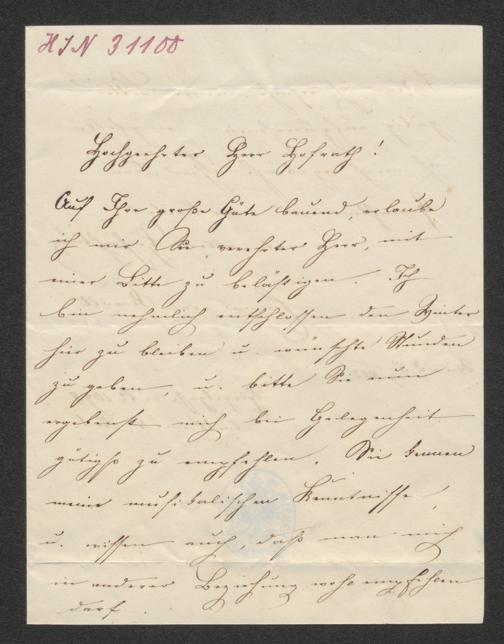 HIN 31100
Hochgeehrter Herr Hofrath!
Auf Ihre große Güte bauend, erlaube
ich mir Sie, verehrter Herr, mit
einer Bitte zu belästigen. Ich
bin nehmlich entschlossen den Winter
hier zu bleiben u. wünschte Stunden
zu geben, u. bitte Sie nun
ergebenst mich bei Gelegenheit
gütigst zu empfehlen. Sie kennen
meine musikalischen Kenntnisse,
u. wissen auch, daß man mich
in anderer Beziehung wohl empfehlen
darf.